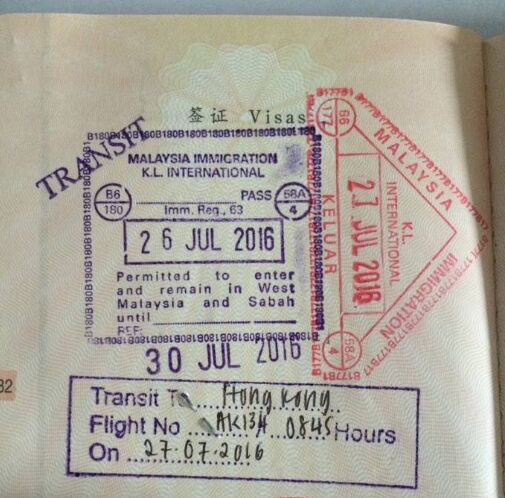 签证 Visas
TRANSIT
MALAYSIA IMMIGRATION
K.L. INTERNATIONAL
B6 180 PASS 58A 4
Imm. Reg., 63
26 JUL 2016
Permitted to enter
and remain in West
Malaysia and Sabah
until
REF:
30 JUL 2016
MALAYSIA
IMMIGRATION
K.L.
INTERNATIONAL
JUL 2016
KELUAR
66 177
58A 4
Transit To Hong Kong
Flight No AK134 0845 Hours
On 27.07.2016
32